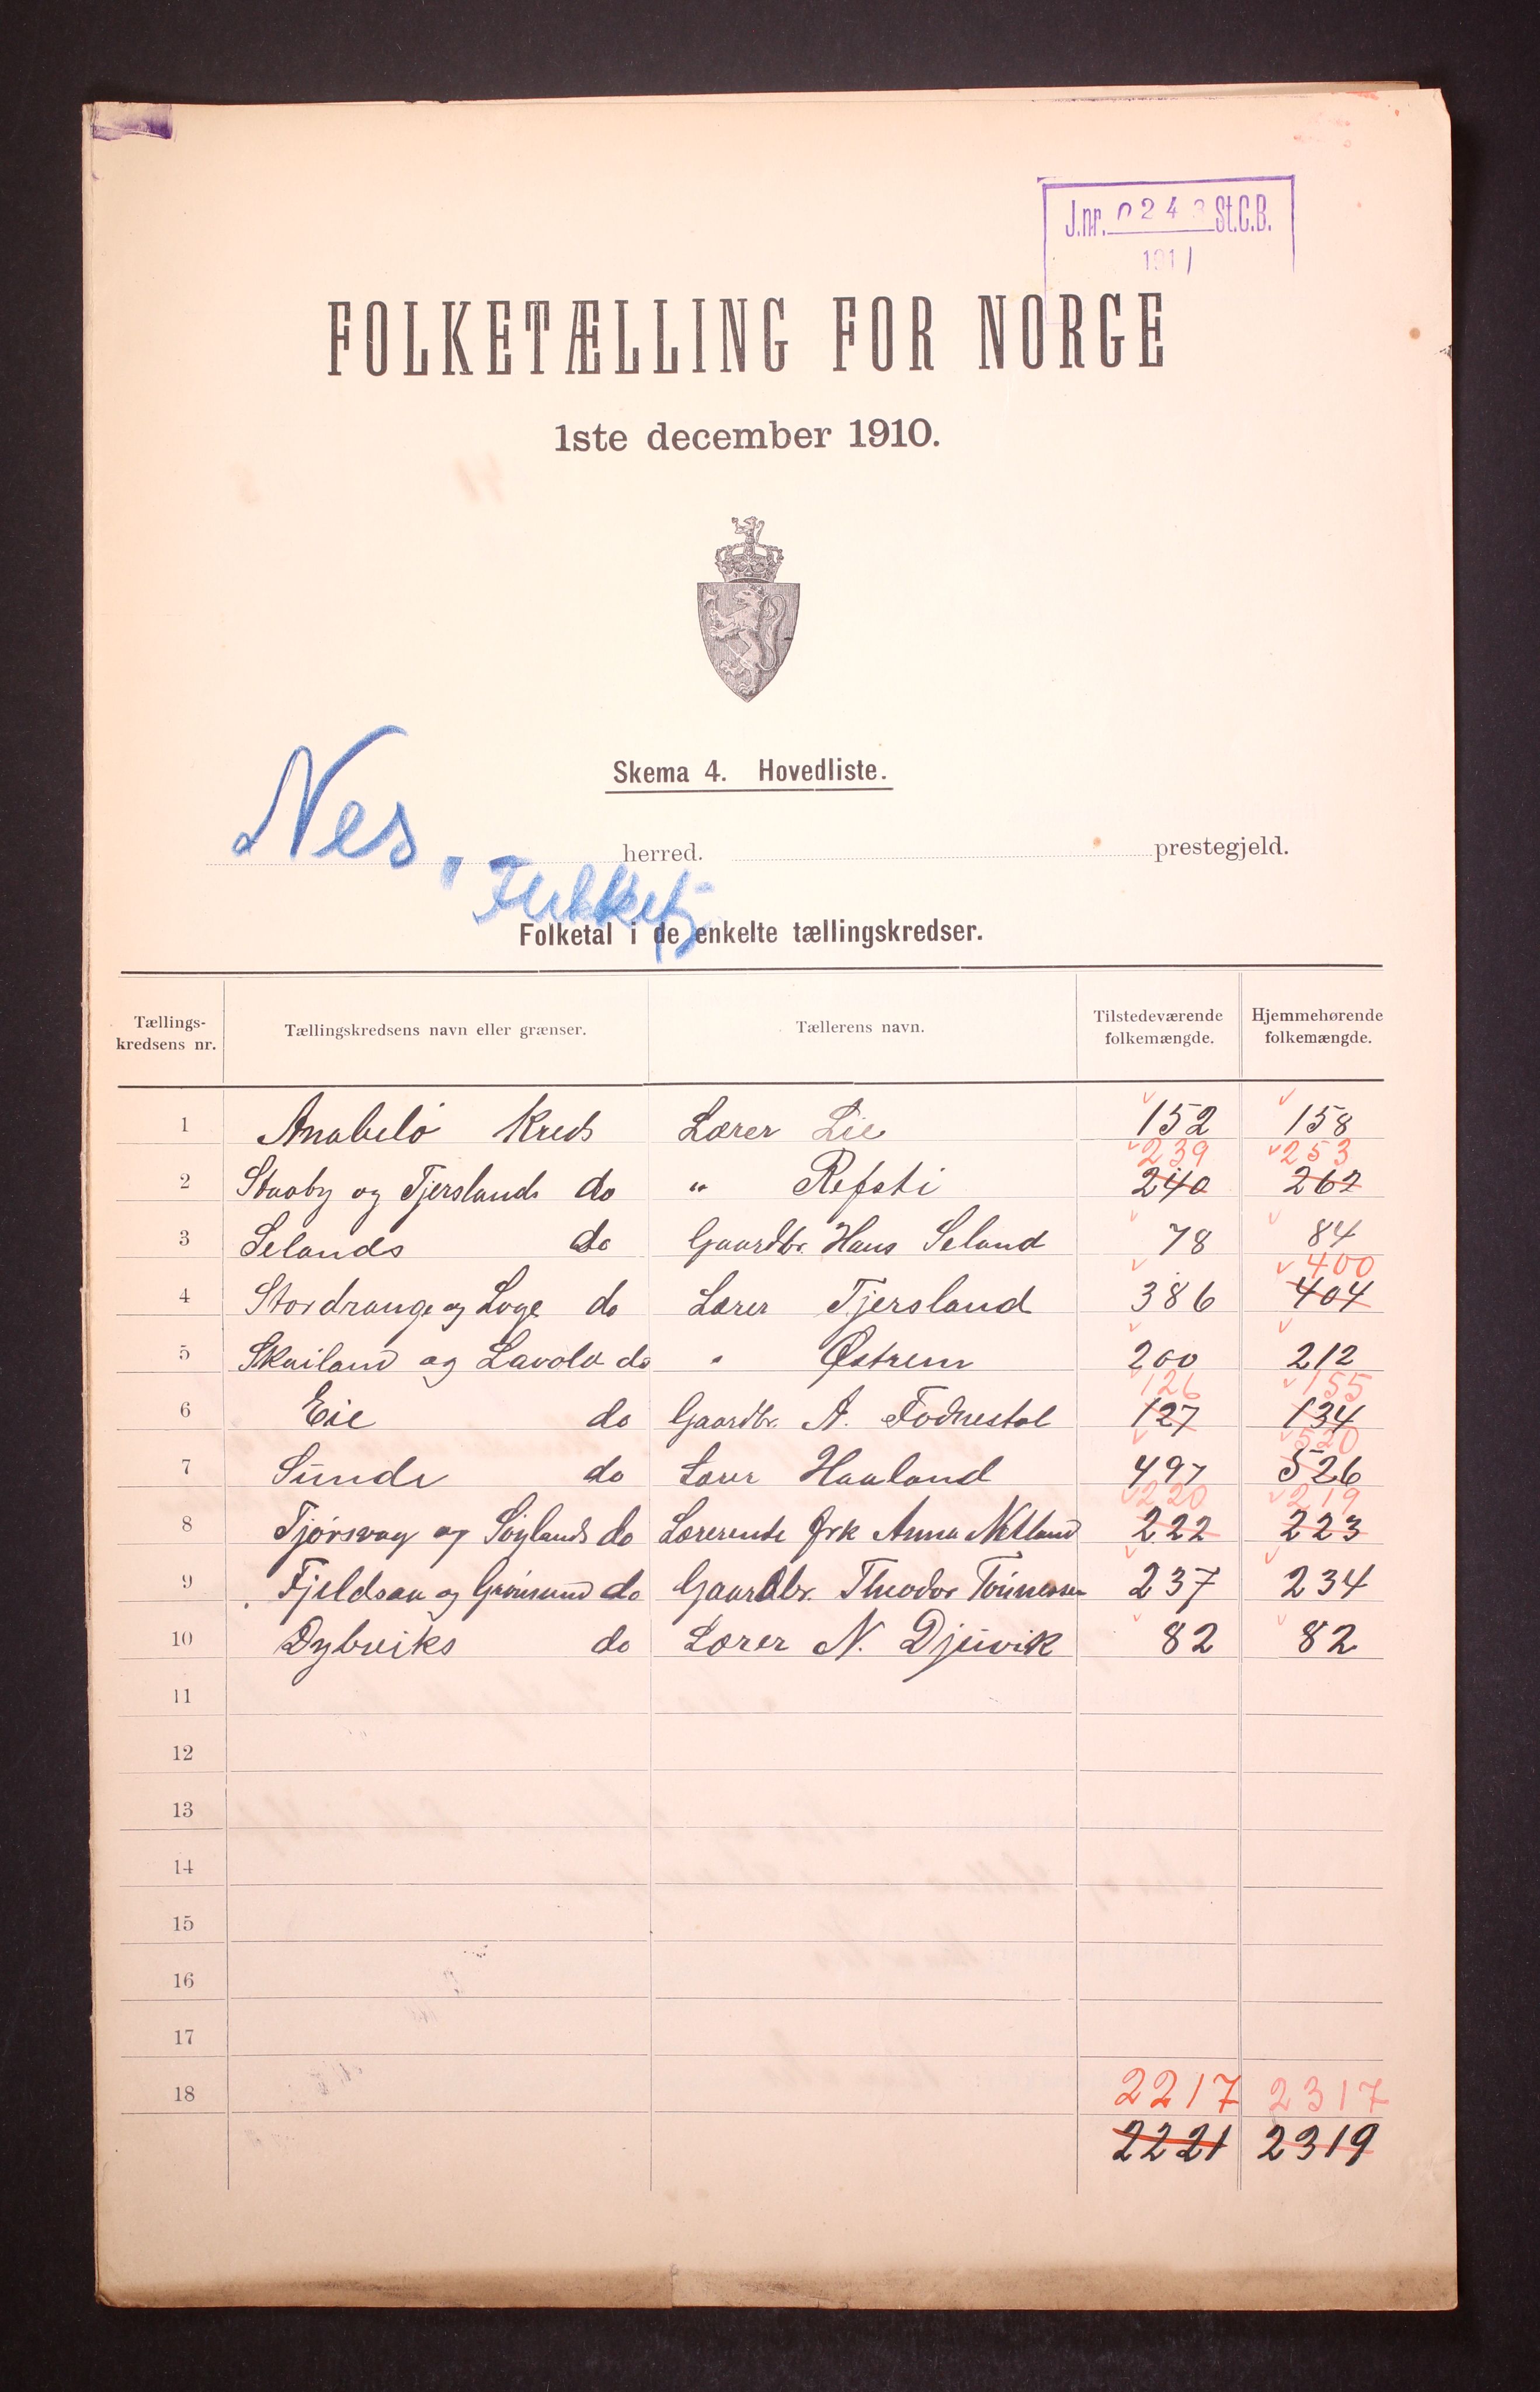 J.nr. 0243 St.C.B.
1911
FOLKETÆLLING FOR NORGE
1ste december 1910.
Skema 4. Hovedliste.
Nes, herred. prestegjeld.
Flekkefj
Folketal i de enkelte tællingskredser.
Tællings-kredsens nr. Tællingskredsens navn eller grænser. Tællerens navn. Tilstedeværende folkemængde. Hjemmehørende folkemængde.
1 Anabelø Kreds Lærer Lie 152 158
239 253
2 Staaby og Tjerslands do " Refsti 240 262
3 Selands do Gaardbr. Hans Seland 78 84
400
4 Stordrange og Loge do Lærer Tjersland 386 404
5 Skailand og Lavold do " Østrem 200 212
126 155
6 Eie do Gaardbr. A. Fodnestøl 127 134
520
7 Sunde do Lærer Haaland 497 526
220 219
8 Tjørsvag og Søylands do Lærerinde Frk Anna Netland 222 223
9 Fjeldsaa og Grønsund do Gaardbr. Theodor Tønnessen 237 234
10 Dybviks do Lærer N. Djuvik 82 82
11
12
13
14
15
16
17
18 2217 2317
2221 2319